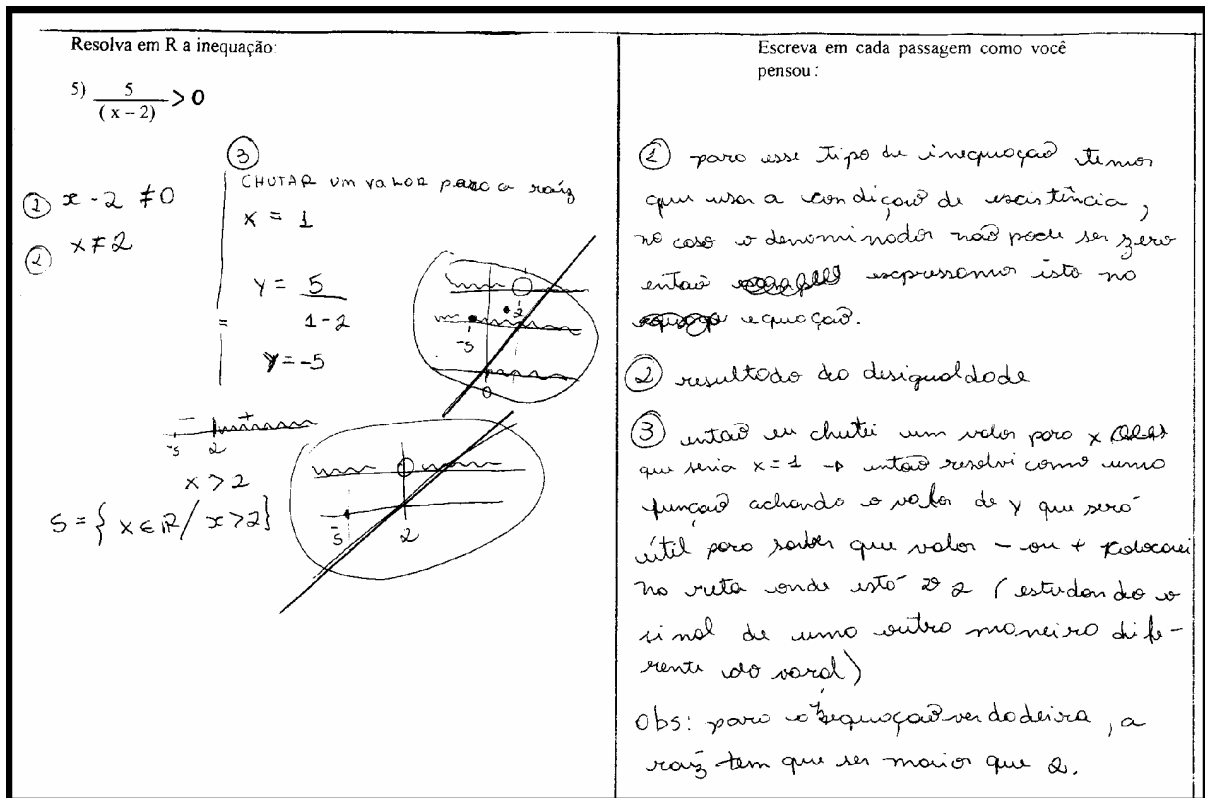 Resolva em R a inequação:
5) 5 / (x – 2) > 0
① x - 2 ≠ 0
② x ≠ 2
③
CHUTAR um valor para a raiz
x = 1
y = 5
= 1-2
y = -5
2
-5
0
- +
-5 2
x > 2
S = { x ∈ R / x > 2 }
-5 2
Escreva em cada passagem como você
pensou :
① para esse tipo de inequação temos
que usar a condição de existência,
no caso o denominador não pode ser zero
então expressamos isto na
equação.
② resultado da desigualdade
③ então eu chutei um valor para x
que seria x = 1 → então resolvi como uma
função achando o valor de y que será
útil para saber que valor – ou + colocarei
na reta onde está o 2 (estudando o
sinal de uma outra maneira dife-
rente do varal)
Obs: para a inequação verdadeira, a
raiz tem que ser maior que 2.